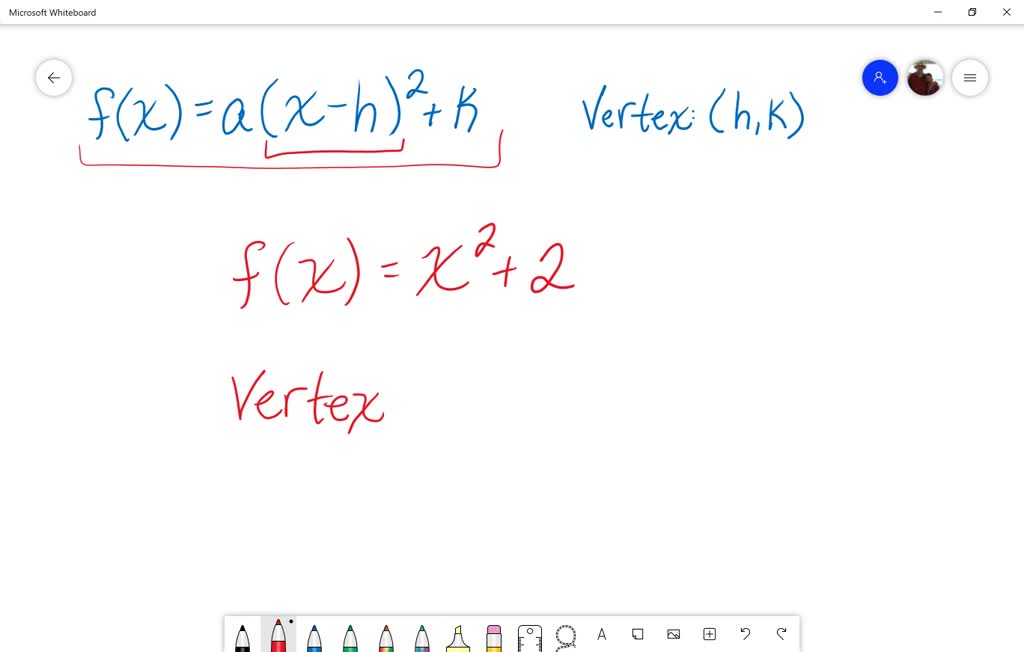 Microsoft Whiteboard
f(x)=a(x-h)²+k Vertex: (h,k)
f(x) = x²+2
Vertex
A